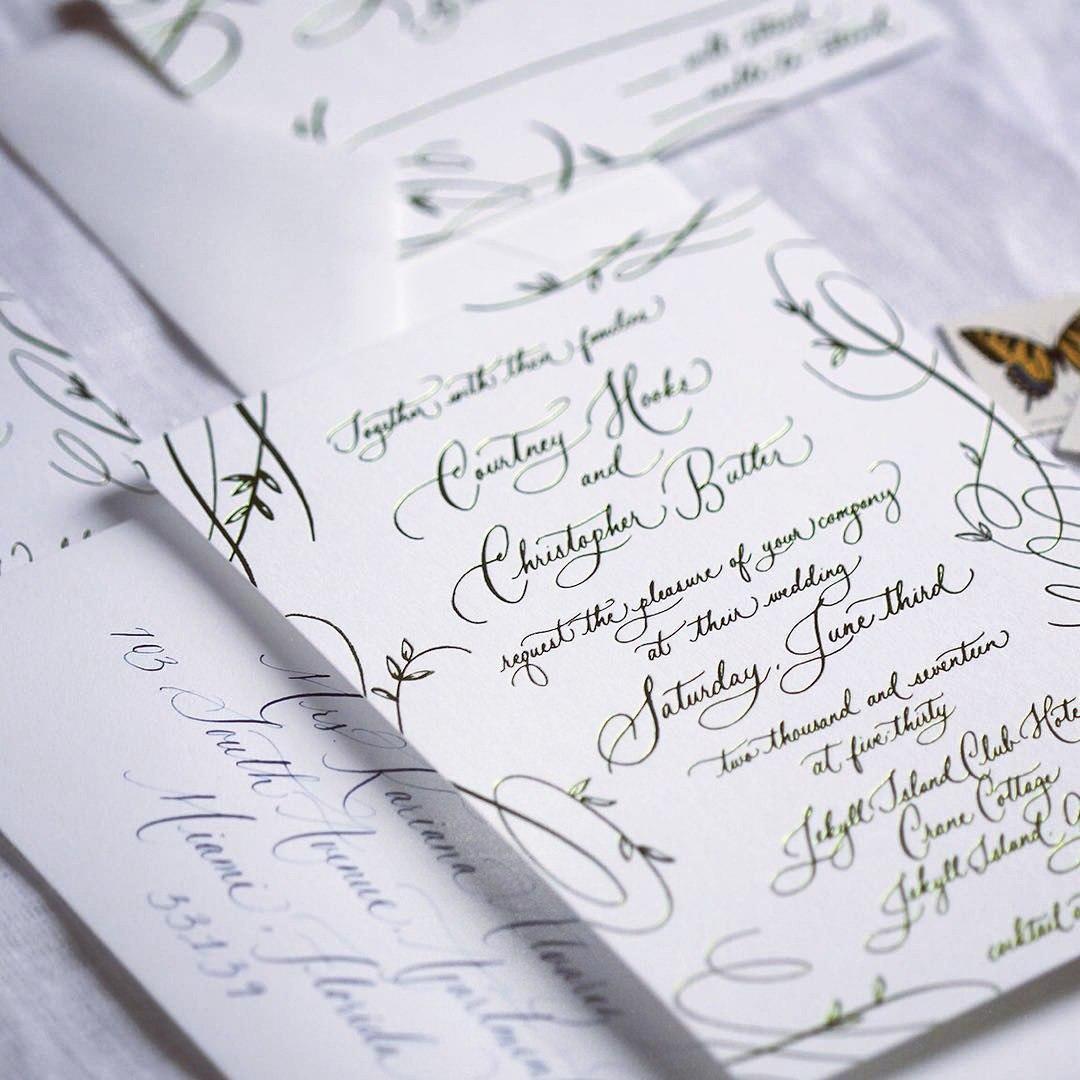 of
Together with their families
Courtney Hooks
and
Christopher Butter
request the pleasure of your company
at their wedding
Saturday, June third
two thousand and seventeen
at five thirty
Jekyll Island Club
Crane Cottage
Jekyll Island,
cocktail
Mrs. Kariana
703 South Avenue,
Miami, Florida
33139